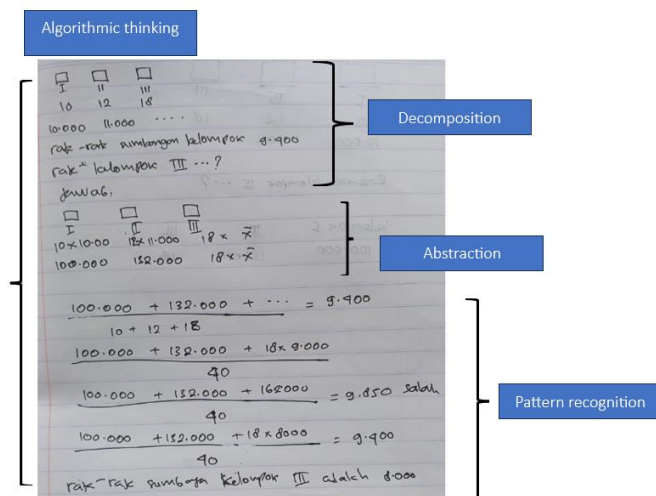 Algorithmic thinking
I II III
10 12 18
10.000 11.000 ....
rak-rak sumbangan kelompok 9.400
rak² kelompok III ...?
Jawab.
I II III
10x10.00 12x11.000 18 x x̄
100.000 132.000 18 x x̄
100.000 + 132.000 + ... = 9.400
10 + 12 + 18
100.000 + 132.000 + 18x9.000
40
100.000 + 132.000 + 162000 = 9.850 salah
40
100.000 + 132.000 + 18 x 8000 = 9.400
40
rak-rak sumbaga kelompok III adalah 8.000
Decomposition
Abstraction
Pattern recognition